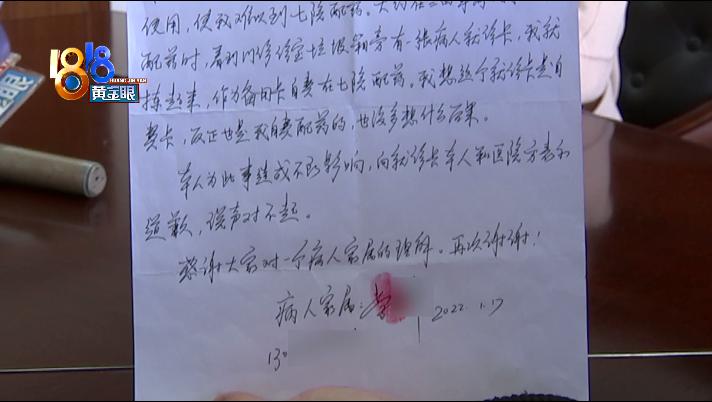 使用,使我难以到七院配药。大约在三
配药时,看到门诊诊室垃圾箱旁有一张病人就诊卡,我就
拣起来,作为备用卡自费在七院配药。我想这个就诊卡是自
费卡,反正也是我自费配药的,也没多想什么后果。
本人为此事造成不良影响,向就诊卡本人和医院方表示
道歉,说声对不起。
感谢大家对一个病人家属的理解。再次谢谢!
病人家属:
2022.1.17
130
1818
HUANG JIN YAN
黄金眼